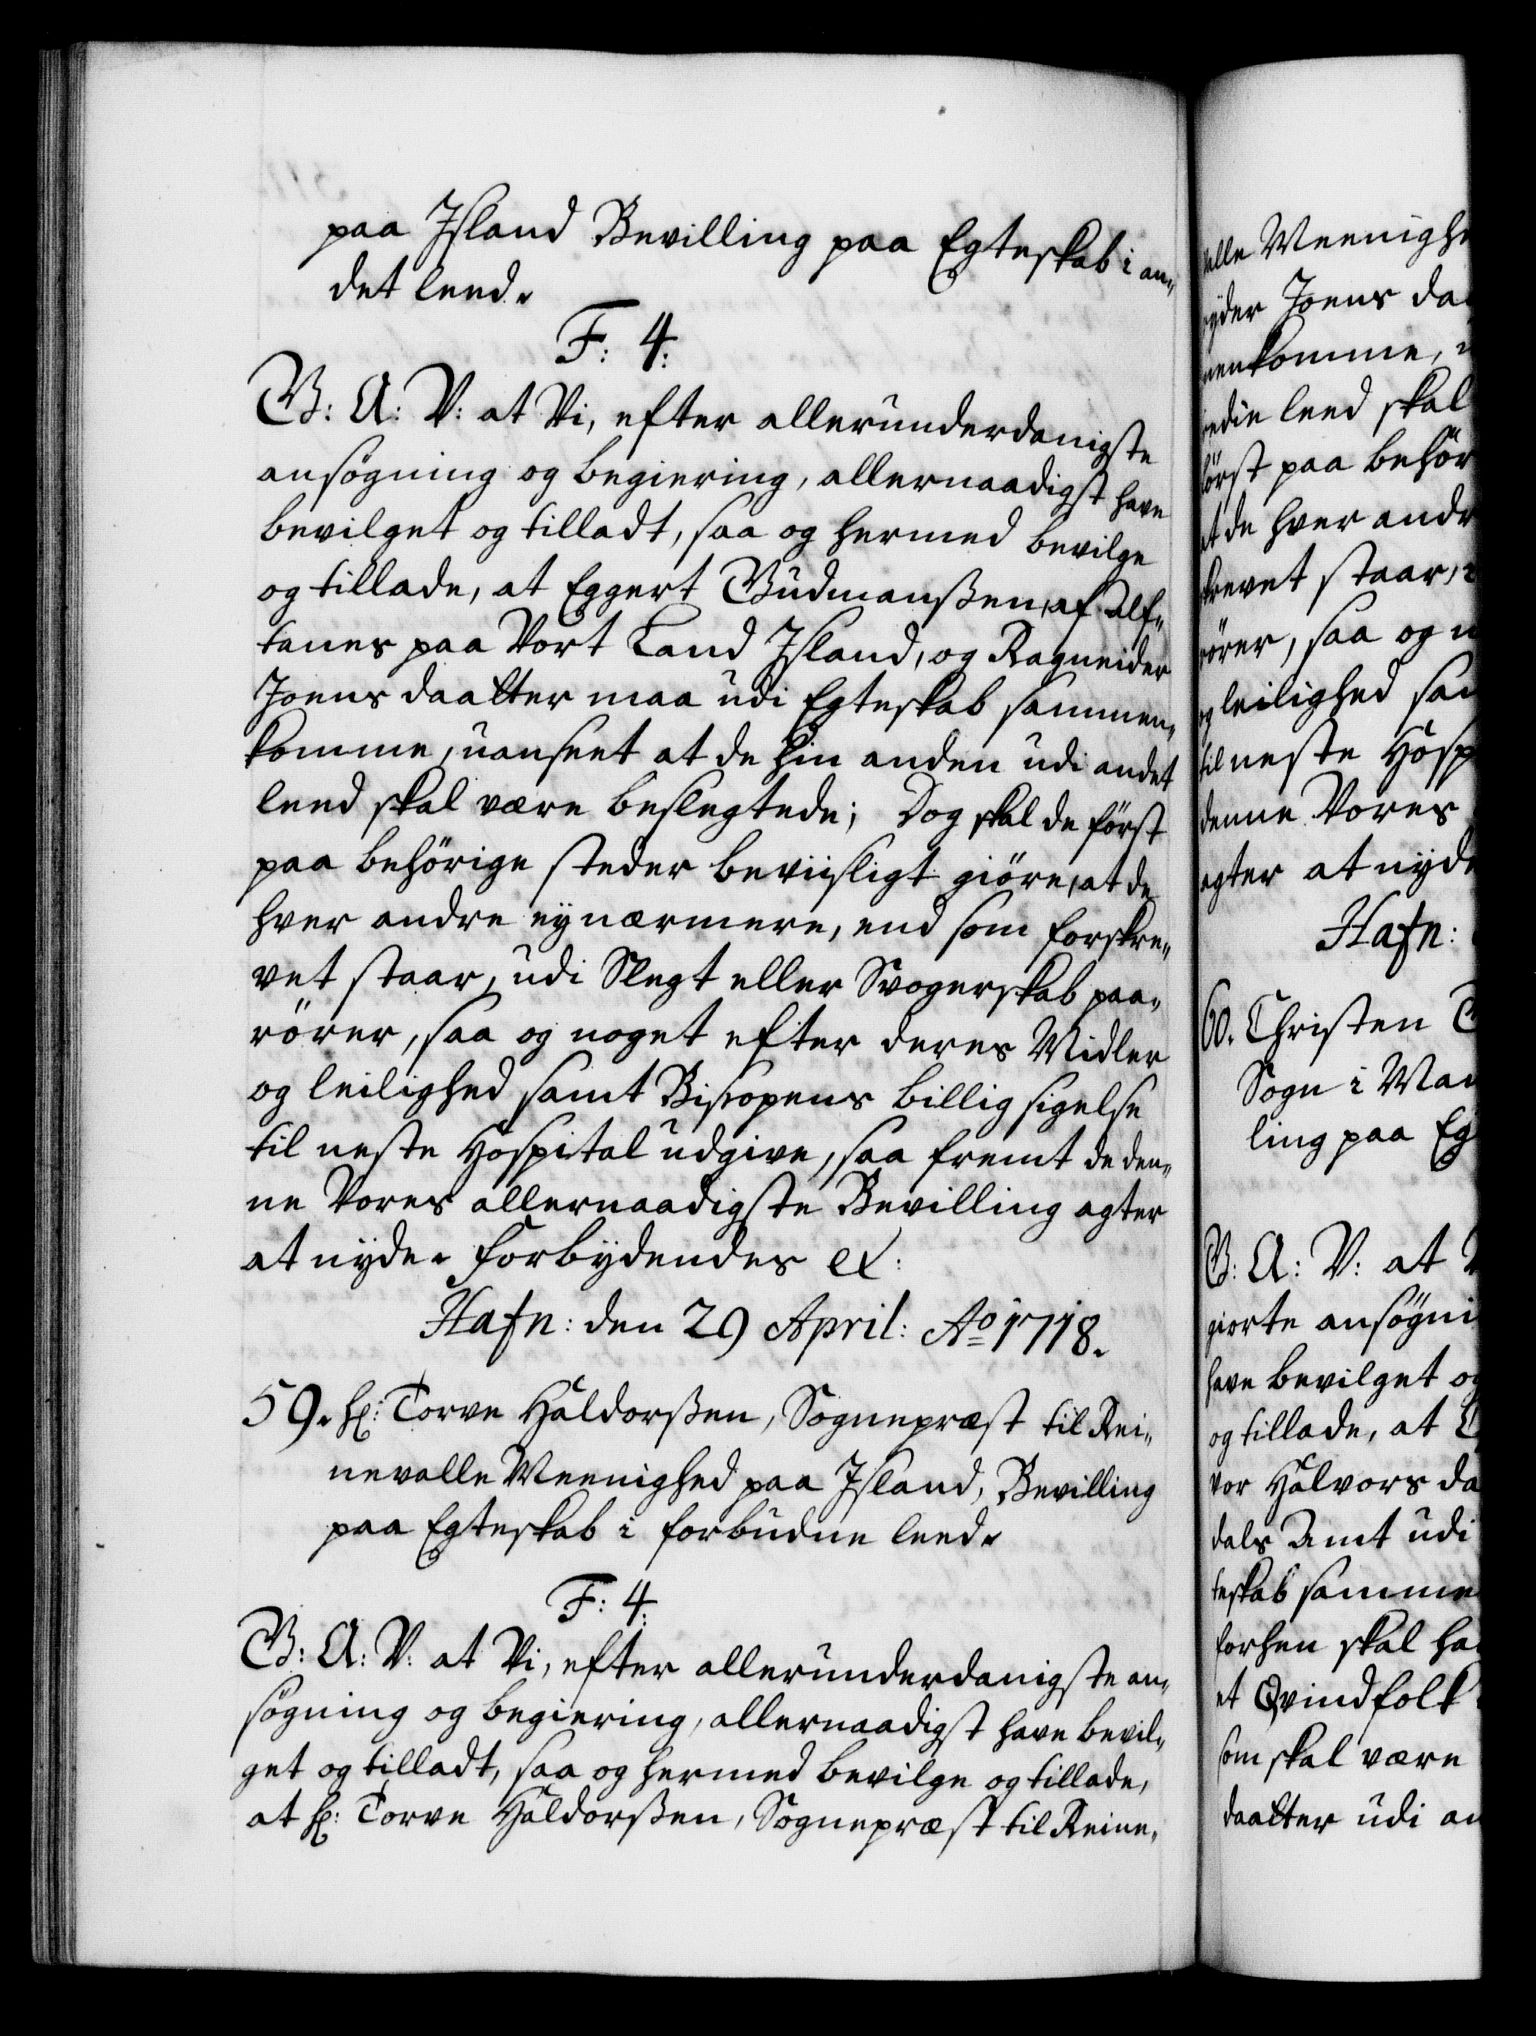 paa Island Bevilling paa Egteskab i an-
det leed.
F: 4:
G: A: V: at Vi, efter allerunderdanigste
ansøgning og begiering, allernaadigst have
bevilget og tilladt, saa og hermed bevilge
og tillade, at Eggert Gudmanßen, af Alf-
tanes paa Vort Land Island, og Ragneider
Joens daatter maa udi Egteskab sammen-
komme, uanseet at de hin anden udi andet
leed skal være beslegtede; Dog skal de først
paa behörige steder beviisligt giöre, at de
hver andre ey nærmere, end som forskre-
vet staar, udi Slegt eller Svogerskab paa-
rörer, saa og noget efter deres Midler
og leilighed samt Biscopens billig sigelse
til neste Hospital udgive, saa fremt de den-
ne Vores allernaadigste Bevilling agter
at nyde. Forbydendes etc:
Hafn: den 29 April: Ao 1718.
59. Hr: Torve Haldorßen, Sognepræst til Rei-
nevalle Meenighed paa Island, Bevilling
paa Egteskab i forbudne leed.
F: 4:
G: A: V: at Vi, efter allerunderdanigste an-
søgning og begiering, allernaadigst have bevil-
get og tilladt, saa og hermed bevilge og tillade,
at Hr: Torve Haldorßen, Sognepræst til Reine-
valle Meenigh
Joens da
komme,
leed skal
paa behör
at de hver andr
staar,
rörer, saa og
leilighed sa
til neste Hosp
denne Vores
agter at nyde
Hafn:
60. Christen
Sogn i
ling paa Eg
G: A: V: at
giorte ansøgni
have bevilget og
og tillade, at
vor Halvors da
dals Amt udi
teskab samme
forhen skal ha
et Qvindfolk
som skal være
daatter udi an